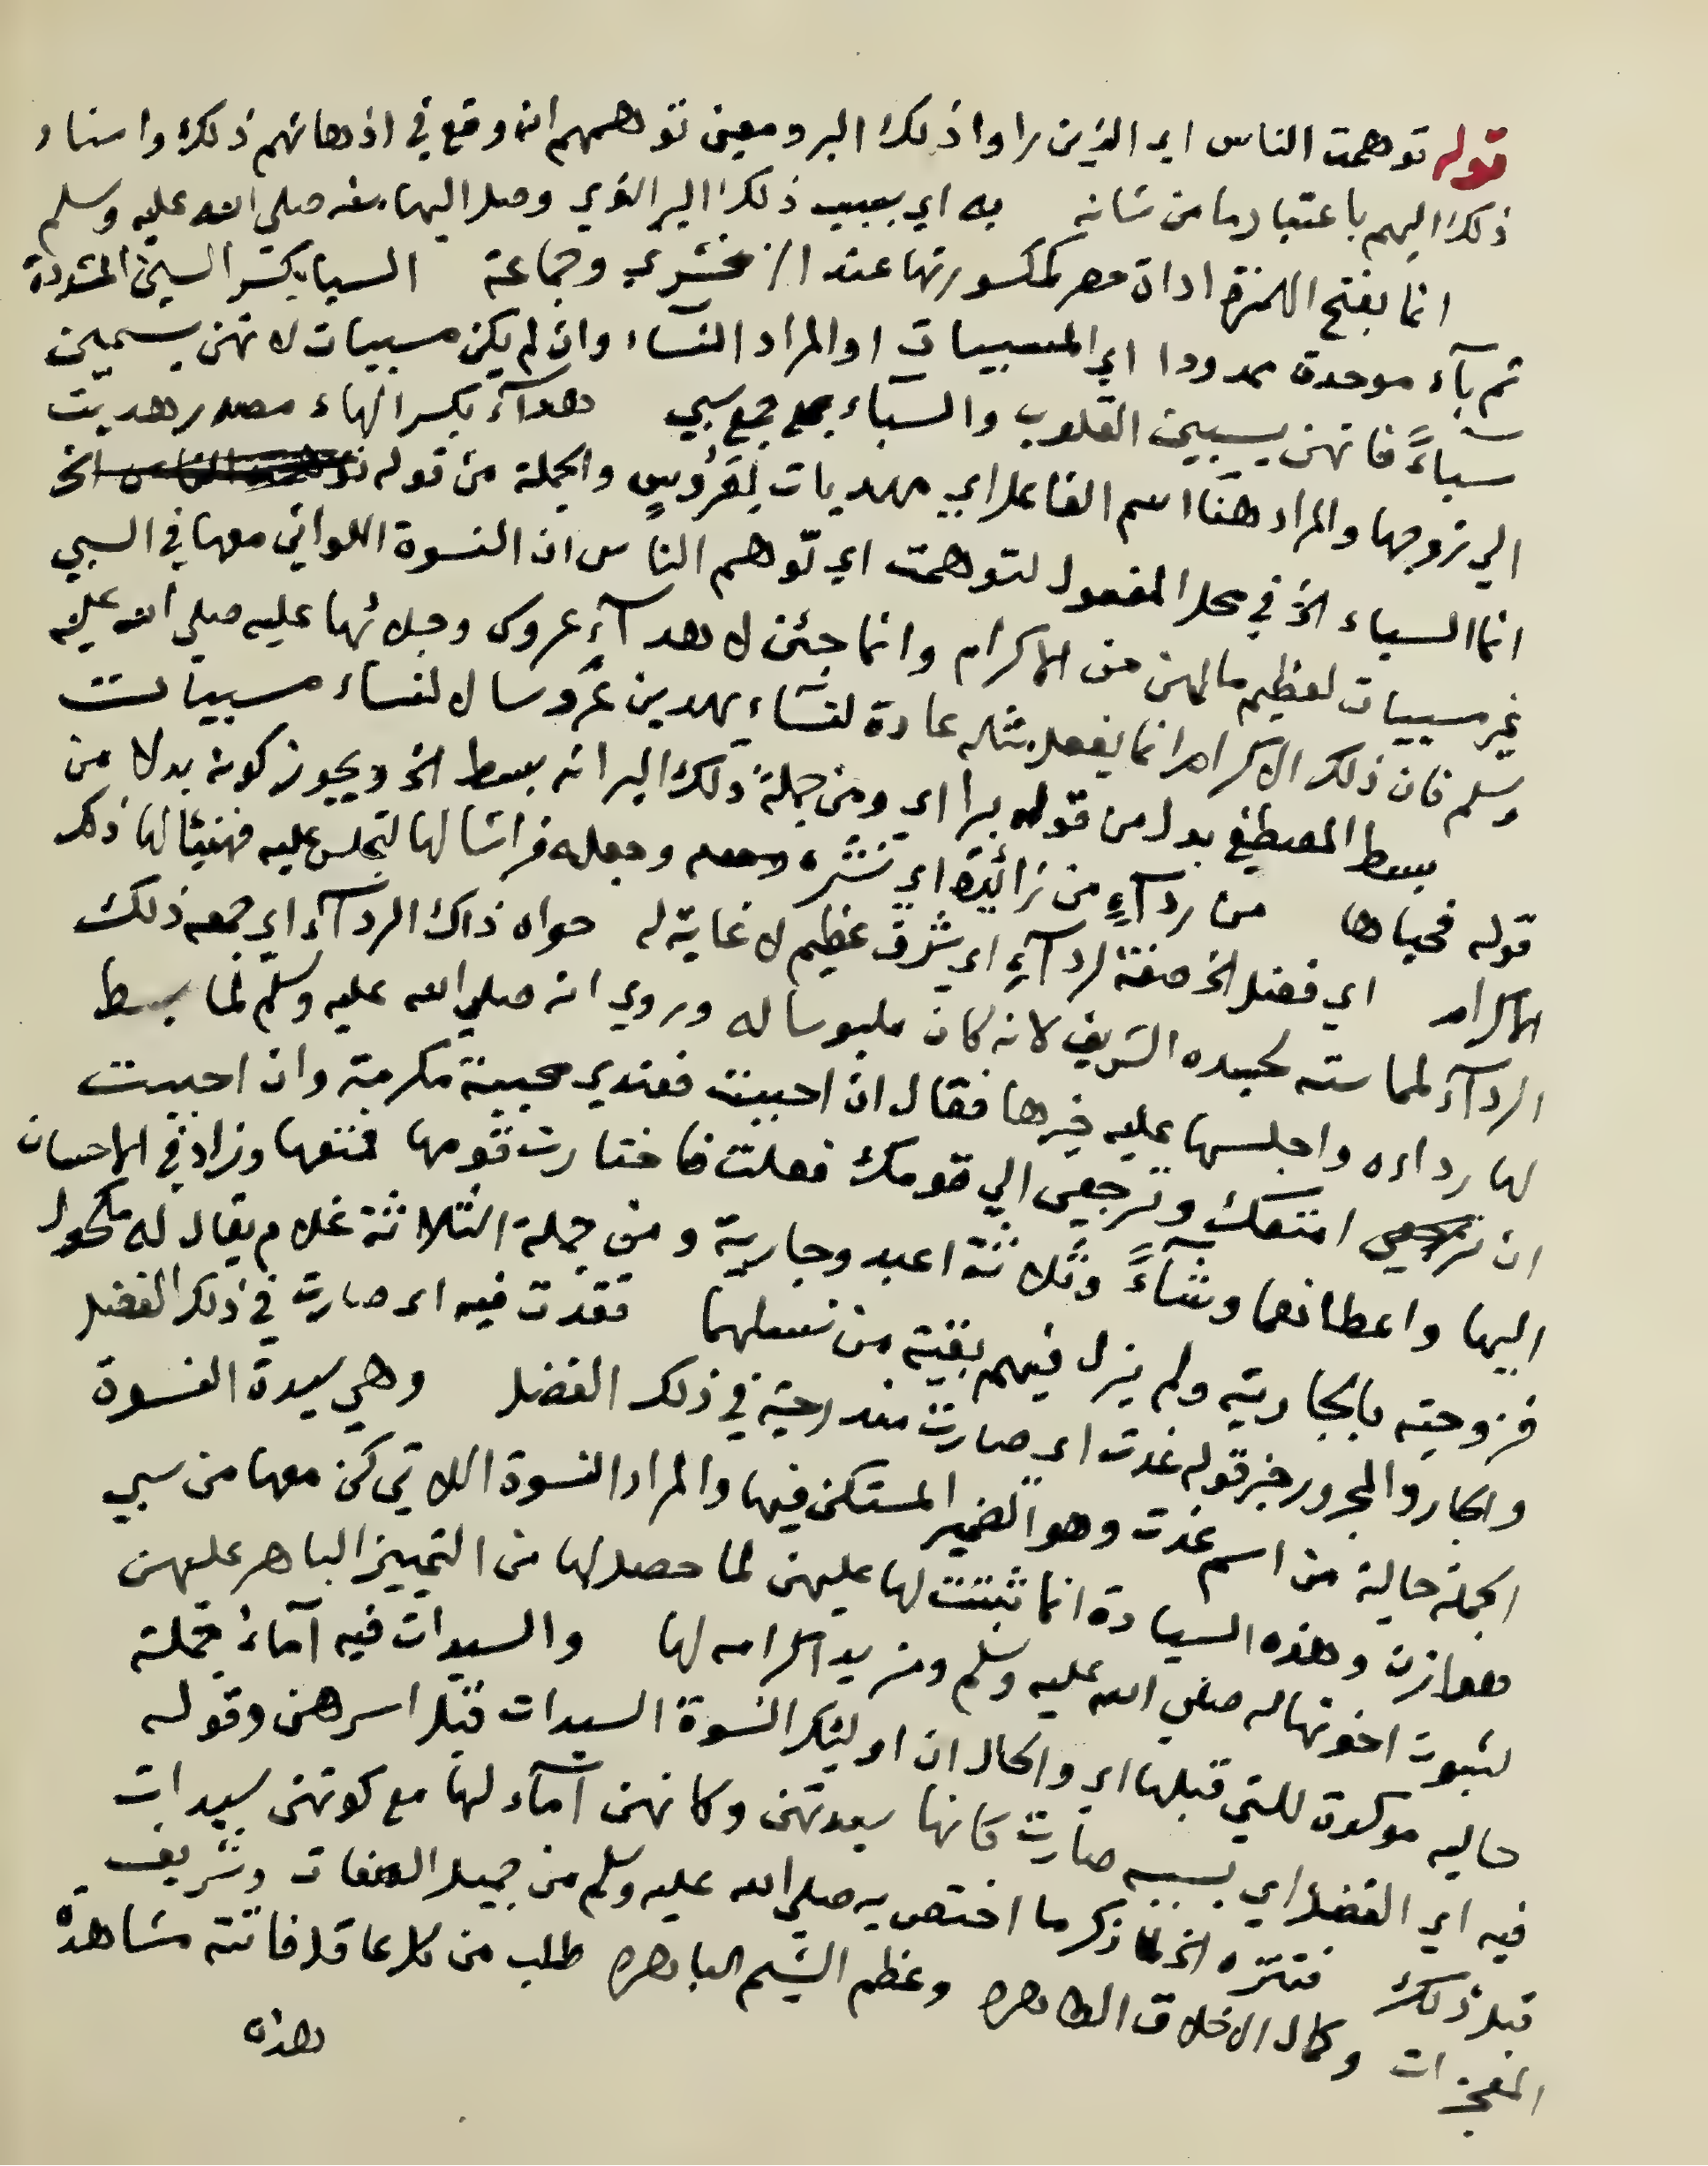 قوله توهمت الناس اي الذين راوا ذلك البر ومعنى توهمهم انه وقع في اذهانهم ذلك واسناد
ذلك اليهم باعتبار ما من شانه به اي بسبب ذلك البر الذي وصل اليها منه صلي الله عليه وسلم
انما بفتح الهمزة اداة حصر كمكسورتها عند الزمخشري وجماعة السبا بكسر السين المشددة
ثم بآء موحدة ممدودا اي المسبيات او المراد النسآء وان لم يكن مسبيات لانهن يسمين
سباءً فانهن يسبين القلوب والسبآء جمع سبي هدآء بكسر الهاء مصدر هديت
الي زوجها والمراد هنا اسم الفاعل اي مهديات لِعَرُوسٍ والجملة من قوله توهمت الناس الخ
انما السباء الخ في محل المفعول لتوهمت اي توهم الناس ان النسوة اللواتي معها في السبي
غير مسبيات لعظيم ما لهن من الاكرام وانما جئن لاهدآء عروس وجلائها عليه صلي الله عليه
وسلم فان ذلك الاكرام انما يفعل مثله عادة لنسآء يهدين عروسا لا لنساء مسبيات
بسط المصطفي بدل من قوله برا اي ومن جملة ذلك البر انه بسط الخ ويجوز كونه بدلا من
قوله فحباها من ردآءٍ من زائدة اي نشره وجعله فراشا لها لتجلس عليه فهنيئا لها ذلك
الاكرام اي فضل الخ صفة لردآءٍ اي شرف عظيم لا غاية له حواه ذاك الردآء اي جمعه ذلك
الردآء لمماسته لجسده الشريف لانه كان ملبوسا له وروي انه صلي الله عليه وسلم لما بسط
لها رداءه واجلسها عليه خيرها فقال ان احببت فعندي محببة مكرمة وان احببت
ان ترجعي امتعك وترجعي الي قومك فعلت فاختارت قومها فمتعها وزاد في الاحسان
اليها واعطا نعما وشآءً وثلاثة اعبد وجارية ومن جملة الثلاثة غلام يقال له مكحول
فزوجته بالجارية ولم يزل فيهم بقية من نسلهما فغدت فيه اي صارت في ذلك الفضل
والجار والمجرور خبر قوله غدت اي صارت مندرجة في ذلك الفضل وهي سيدة النسوة
الجملة حالية من اسم غدت وهو الضمير المستكن فيها والمراد النسوة اللاتي كن معها من سبي
هوازن وهذه السيادة انما ثبتت لها عليهن لما حصل لها من التمييز الباهر عليهن
لثبوت اخوتها له صلي الله عليه وسلم ومزيد اكرامه لها والسيدات فيه آماءُ جملة
حاليه موكدة للتي قبلها اي والحال ان اوليك النسوة السيدات قبل اسرهن وقوله
فيه اي الفضل اي بسببه صارت كانها سيدتهن وكانهن آمآء لها مع كونهن سيدات
قبل ذلك فتنزه الخ لما ذكر ما اختص به صلي الله عليه وسلم من جميل الصفات وشريف
المعجزات وكمال الاخلاق الطاهره وعظم الشيم الباهره طلب من كل عاقل فاتته مشاهدة
هذه